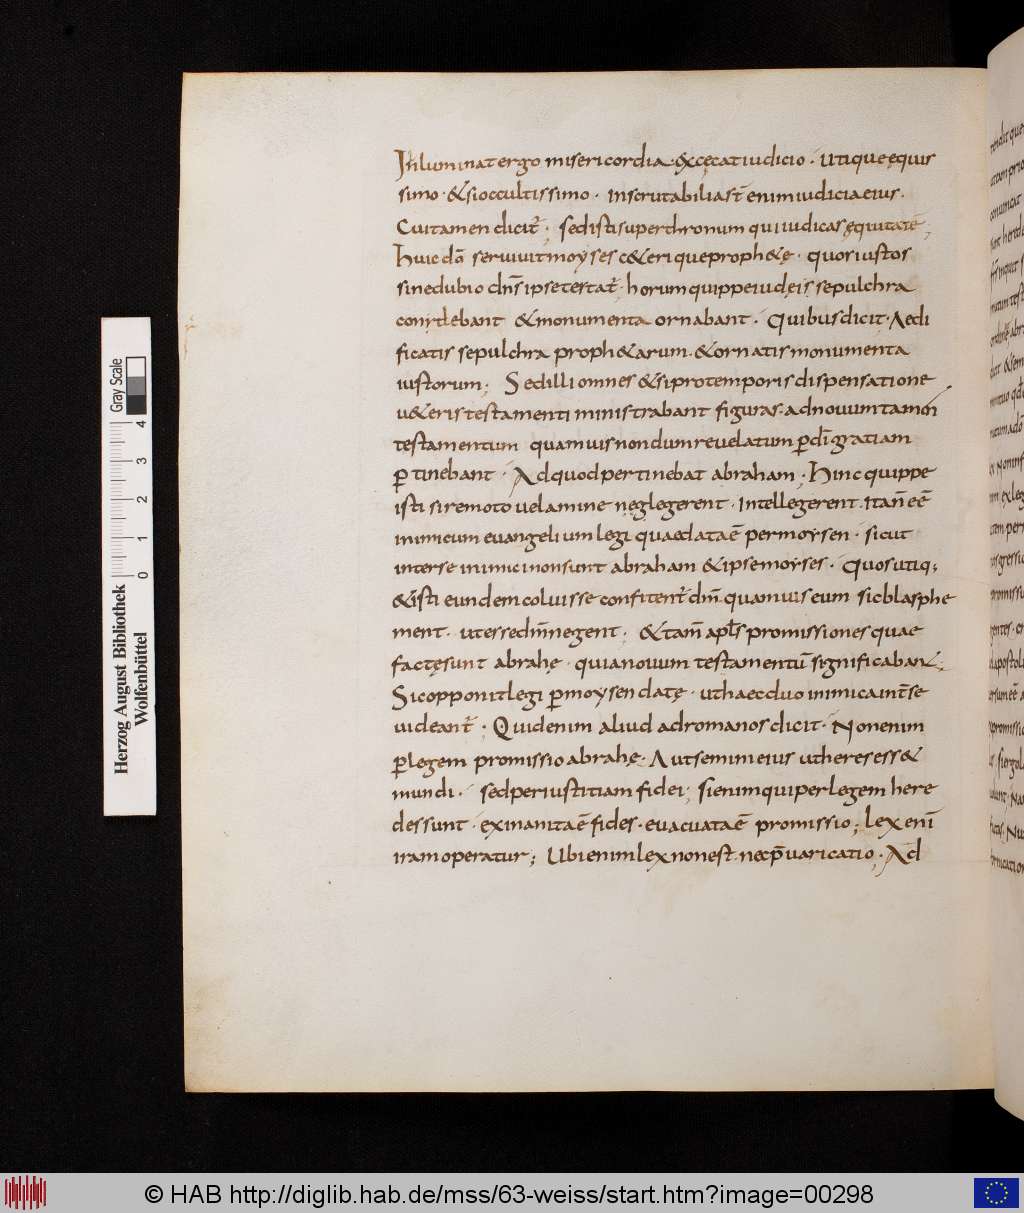 Inluminat ergo misericordia · excęcat iudicio · Utique ęquis
simo · & si occultissimo · inscrutabilia st̄ enim iudicia eius ·
Cui tamen dicit̄ ; sedisti super thronum qui iudicas ęquitatē ;
Huic dō seruiuit moyses c&erique proph&ę · quor iustos
sine dubio dn̄s ipse testat̄ · horum quippe iudęis sepulchra
condebant & monumenta ornabant · Quibus dicit · Aedi
ficatis sepulchra proph&arum · & ornatis monumenta
iustorum ; Sed illi omnes & si pro temporis dispensatione
u&eris testamenti ministrabant figuras · ad nouum tamen
testamentum quamuis nondum reuelatum ꝑ dī gratiam
ꝑtinebant · Ad quod pertinebat abraham · Hinc quippe
isti si remoto uelamine neglegerent · intellegerent · ita n̄ eē
inimicum euangelium legi quae data ē per moysen · sicut
inter se inimici non sunt abraham & ipse moyses · Quos utiq;
& isti eundem coluisse confitent̄ dm̄ quamuis eum sic blasphe
ment · ut esse dm̄ negent · & tam̄ apls̄ promissiones quae
factę sunt abrahę · quia nouum testamentū significabant ;
Sic opponit legi ꝑ moysen datę · ut haec duo inimica int̄ se
uideant̄ · Quid enim aliud ad romanos dicit · Non enim
ꝑ legem promissio abrahę · Aut semini eius ut heres ess&
mundi · sed per iustitiam fidei ; si enim qui per legem here
des sunt · exinanita ē fides · euacuata ē promissio ; Lex enī
iram operatur ; Ubi enim lex non est · nec p̄uaricatio · Ad
Herzog August Bibliothek
Wolfenbüttel
Gray Scale
0 1 2 3 4
© HAB http://diglib.hab.de/mss/63-weiss/start.htm?image=00298